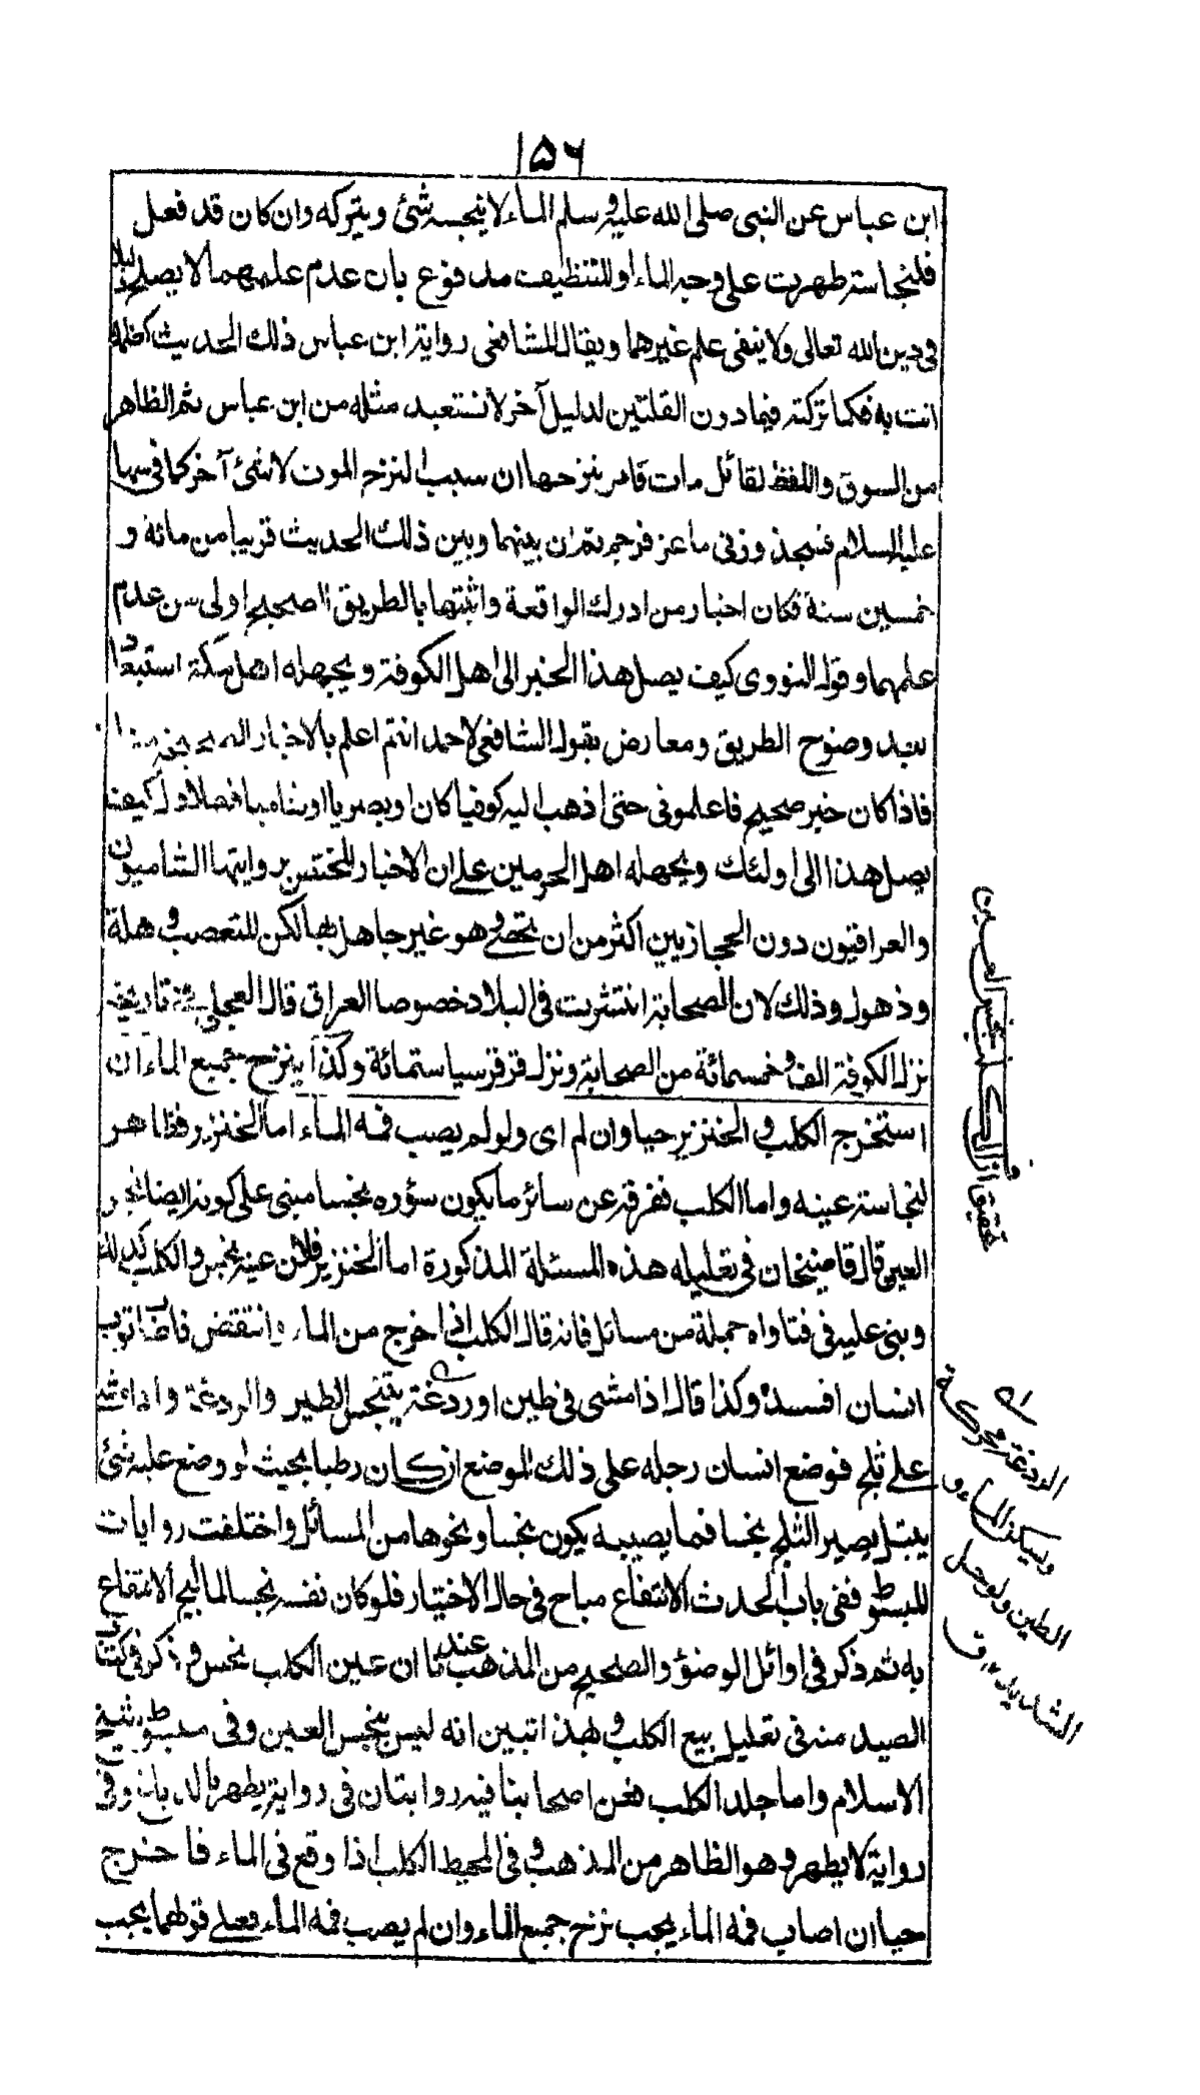 ١٥٦
ابن عباس عن النبى صلى الله عليه وسلم الماء لا ينجسه شئ ويتركه وان كان قد فعل
فلنجاسة ظهرت على وجه الماء او للتنظيف مدفوع بان عدم علمهما لا يصلح دليلا
فى دين الله تعالى ولا ينفى علم غيرهما ويقال للشافعى رواية ابن عباس ذلك الحديث كعلمك
انت به فكما تركته فيما دون القلتين لدليل آخر لا نستبعد مثله من ابن عباس ثم الظاهر
من السوق واللفظ لقائل مات فامر بنزحها ان سبب النزح الموت لا شئ آخر كما فى سها
عليه السلام فسجد وزنى ماعز فرجم ثم ان بينهما وبين ذلك الحديث قريبا من مائة و
خمسين سنة فكان اخبار من ادرك الواقعة واثبتها بالطريق الصحيح اولى من عدم
علمهما وقول النووى كيف يصل هذا الخبر الى اهل الكوفة ويجهله اهل مكة استبعاد
بعيد وضوح الطريق ومعارض بقول الشافعى لاحمد انتم اعلم بالاخبار الصحيحة منا
فاذا كان خبر صحيح فاعلمونى حتى اذهب اليه كوفيا كان او بصريا او شاميا فهلا قال كيف
يصل هذا الى اولئك ويجهله اهل الحرمين على ان الاخبار المختص بروايتها الشاميون
والعراقيون دون الحجازيين اكثر من ان تحصى وهو غير جاهل بها لكن للتعصب وهلة
وذهول وذلك لان الصحابة انتشرت فى البلاد خصوصا العراق قال العجلى فى تاريخه
نزل الكوفة الف وخمسمائة من الصحابة ونزل قرقيسيا ستمائة وكذا ينزح جميع الماء ان
استخرج الكلب والخنزير حيا وان لم اى ولو لم يصب فمه الماء اما الخنزير فظاهر
لنجاسة عينه واما الكلب نفرقته عن سائر ما يكون سؤره نجسا مبنى على كونه ايضا نجس
العين قال قاضيخان فى تعليله هذه المسئلة المذكورة اما الخنزير فلان عينه نجس والكلب كذلك
وبنى عليه فى فتاواه جملة من مسائل فانه قال الكلب اذا خرج من الماء وانتفض فاصاب ثوب
انسان افسده وكذا قال اذا مشى فى طين او ردغة يتنجس الطين والردغة واذا مشى
على ثلج فوضع انسان رجله على ذلك الموضع ان كان رطبا بحيث لو وضع عليه شئ
يبتل يصير الثلج نجسا فما يصيبه يكون نجسا ونحوها من المسائل واختلفت روايات
المبسوط ففى باب الحدث الانتفاع مباح فى حال الاختيار فلو كان نفسه نجسا لما ابيح الانتفاع
به ثم ذكر فى اوائل الوضوء والصحيح من المذهب عندنا ان عين الكلب نجس وذكر فى كتاب
الصيد منه فى تعليل بيع الكلب وبهذا تبين انه ليس بنجس العين وفى مبسوط شيخ
الاسلام واما جلد الكلب فعن اصحابنا فيه روايتان فى رواية يطهر بالدباغ وفى
رواية لا يطهر وهو الظاهر من المذهب وفى المحيط الكلب اذا وقع فى الماء فاخرج
حيا ان اصاب فمه الماء يجب نزح جميع الماء وان لم يصب فمه الماء فعلى قولهما يجب
تحقيق ان الكلب نجس العين
الردغة محركة
وتسكن الماء و
الطين والوحل
الشديد ق